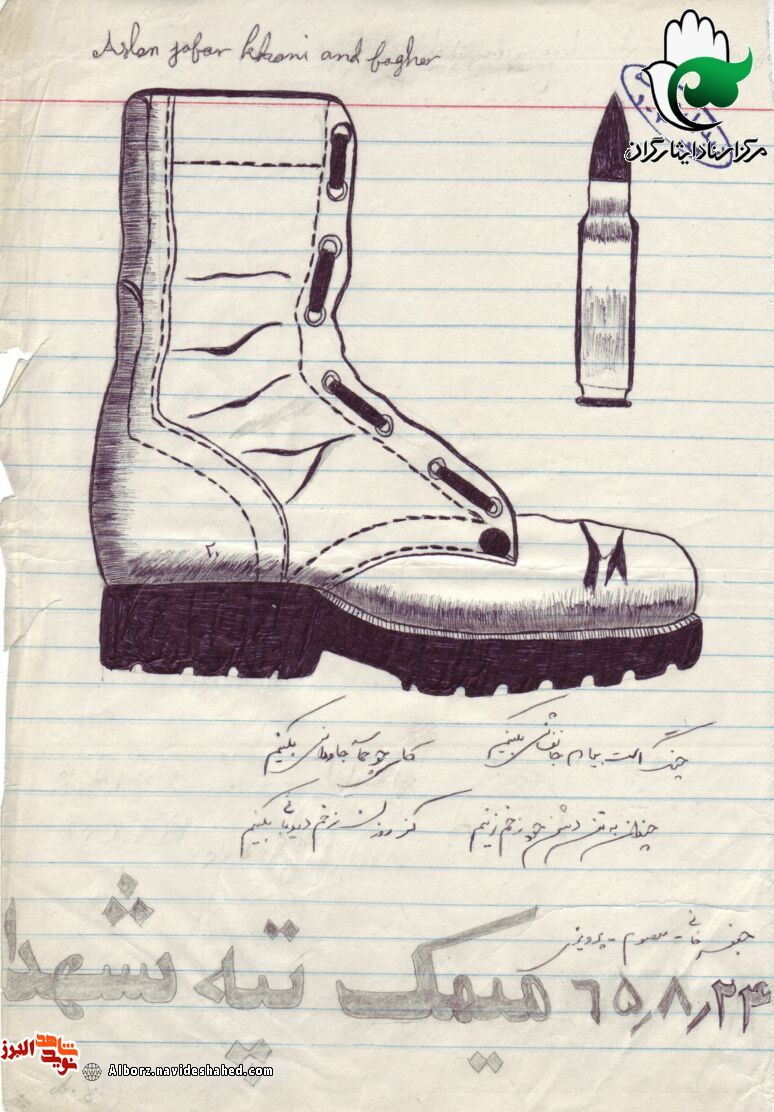 Aslan jafar khani and bagher
مرکز اسناد ایثارگران
جنگ است بیا جانفشانی بکنیم
کاری چو حماسه جاودانی بکنیم
چندان به تن دشمن خود زخم زنیم
کز روزن زخم دیدبانی بکنیم
جعفر خانی - معصوم - پرویزی
۶۵٫۸٫۲۴ میمک تپه شهدا
نوید شاهد البرز
Alborz.navideshahed.com